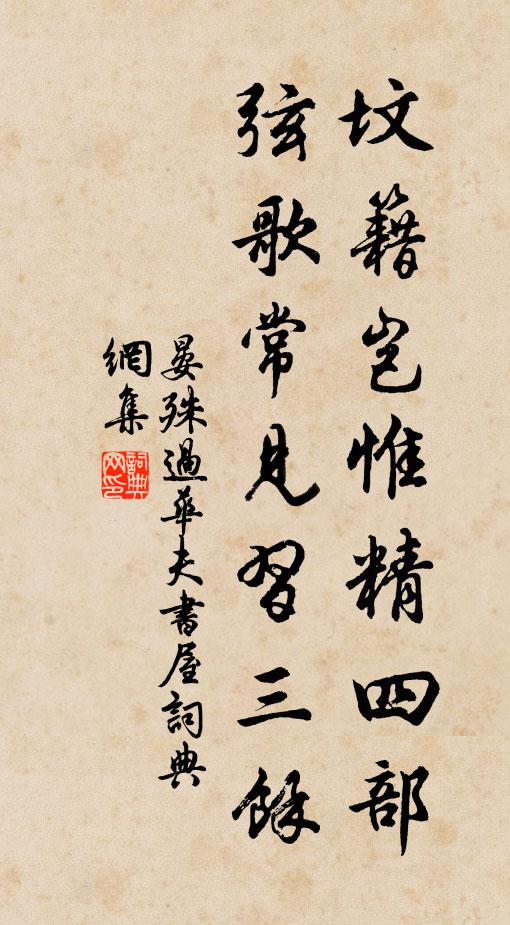 坟籍岂惟精四部
弦歌常見習三餘
晏殊過華夫書屋詞典
網集
詞典
网印